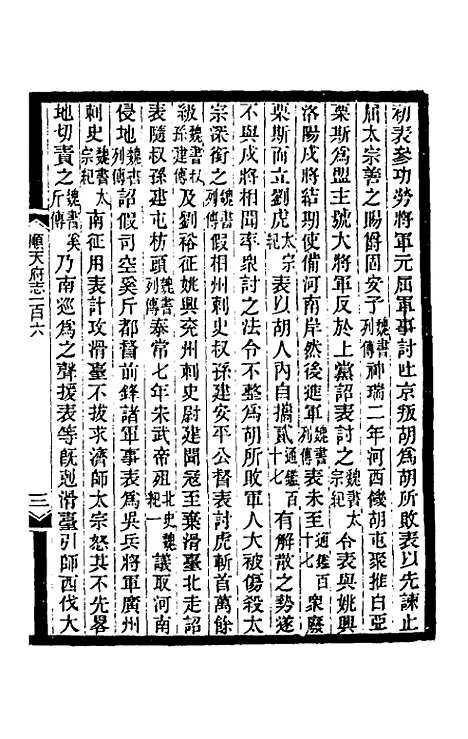 初表參功勞將軍元屈軍事討吐京叛胡爲胡所敗表以先諫止
屈太宗善之賜爵固安子魏書列傳神瑞二年河西饑胡屯聚推白亞
栗斯爲盟主號大將軍反於上黨詔表討之魏書太宗紀令表與姚興
洛陽戍將結期使備河南岸然後進軍魏書列傳表未至通鑑百十七衆廢
栗斯而立劉虎太宗紀表以胡人內自攜貳通鑑百十七有解散之勢遂
不與戍將相聞率衆討之法令不整爲胡所敗軍人大被傷殺太
宗深銜之魏書列傳假相州刺史叔孫建安平公督表討虎斬首萬餘
級魏書叔孫建傳及劉裕征姚興兗州刺史尉建聞寇至棄滑臺北走詔
表隨叔孫建屯枋頭魏書列傳泰常七年朱武帝殂北史魏紀一議取河南
侵地魏書列傳詔假司空奚斤都督前鋒諸軍事表爲吳兵將軍廣州
刺史魏書太宗紀南征用表計攻滑臺不拔求濟師太宗怒其不先畧
地切責之魏書奚斤傳乃南巡爲之聲援表等旣剋滑臺引師西伐大
順天府志一百六
三